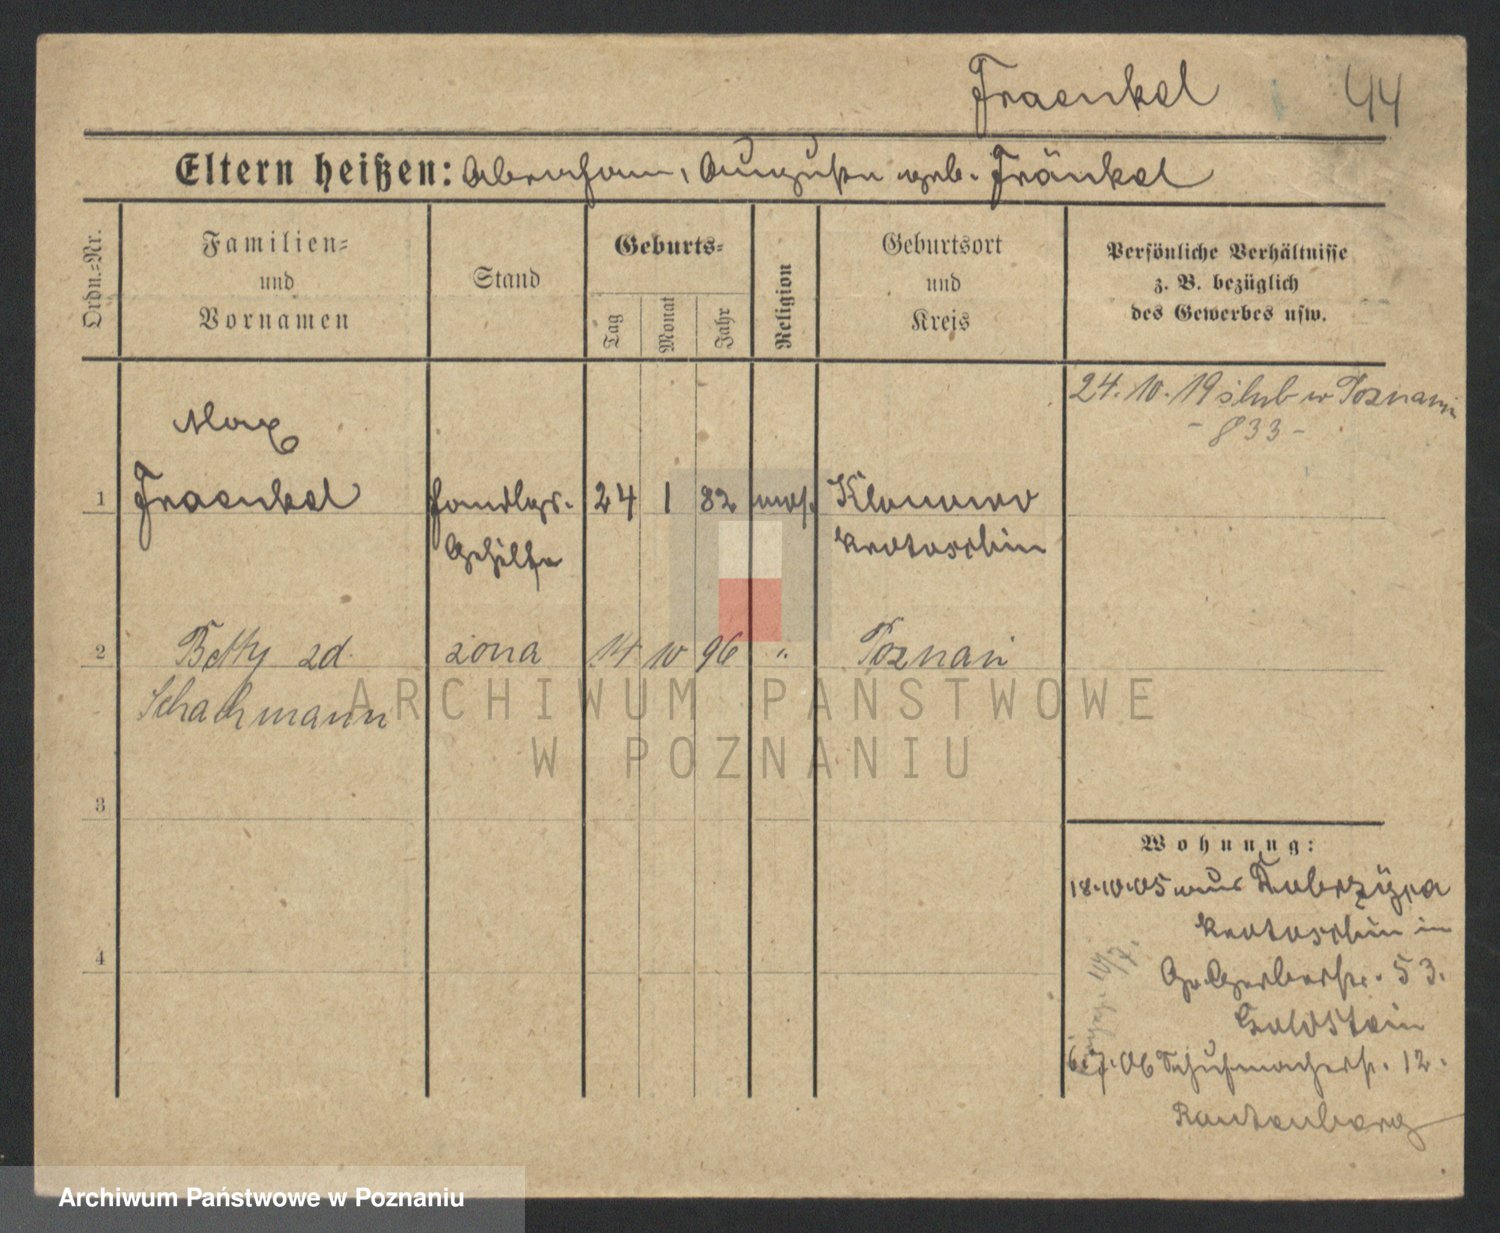 Fraenkel 44
Eltern heißen: Abraham, Auguste geb. Fränkel
Ordn.-Nr.
Familien-
und
Vornamen
Stand
Geburts-
Tag
Monat
Jahr
Religion
Geburtsort
und
Kreis
Persönliche Verhältnisse
z. B. bezüglich
des Gewerbes usw.
24. 10. 19 ślub w Poznaniu
- 833 -
Max
1 Fraenkel Handlgs- 24 1 82 mos. Klonowo
Gehilfe Krotoschin
2 Betty zd. żona 14 10 96 " Poznań
Schachmann
ARCHIWUM PAŃSTWOWE
W POZNANIU
3
4
Wohnung:
18.10.05 aus Dobrzyca
Krotoschin in
Gr. Gerberstr. 53.
Goldstein
6.7.06 Schuhmacherstr. 12.
Rautenberg
Archiwum Państwowe w Poznaniu